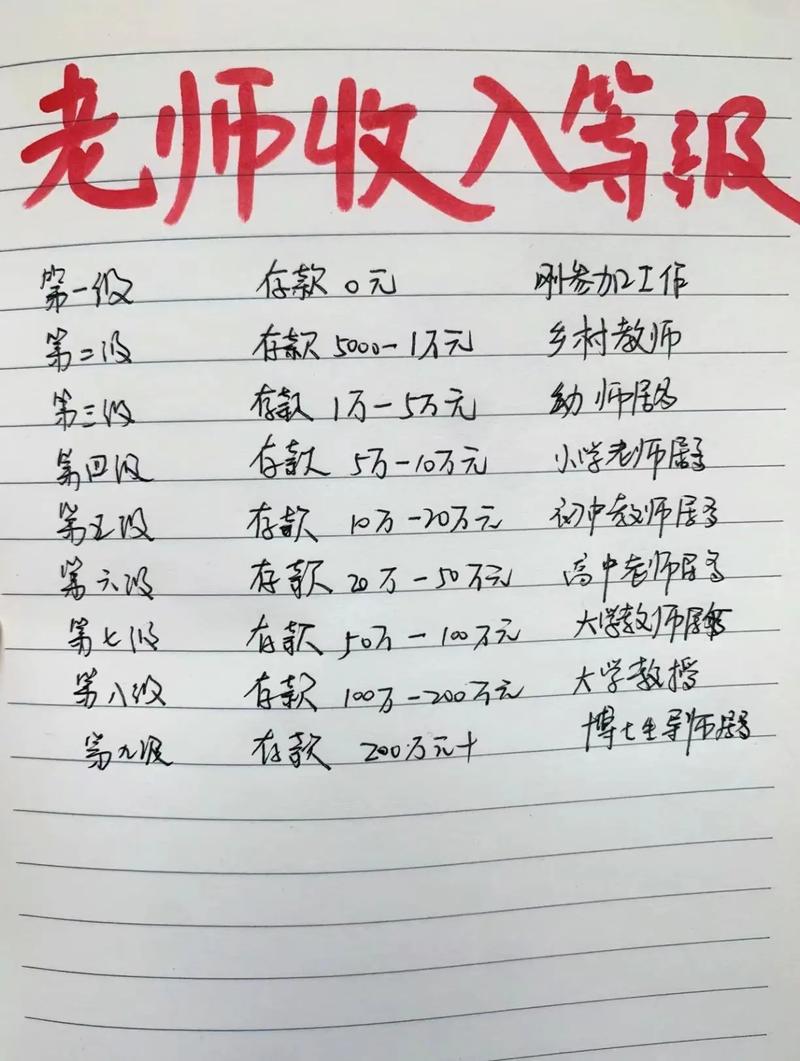 老师收入等级
第一级 存款 0元 刚参加工作
第二级 存款 5000-1万元 乡村教师
第三级 存款 1万-5万元 幼师居多
第四级 存款 5万-10万元 小学老师居多
第五级 存款 10万-20万元 初中教师居多
第六级 存款 20万-50万元 高中老师居多
第七级 存款 50万-100万元 大学教师居多
第八级 存款 100万-200万元 大学教授
第九级 存款 200万元+ 博士生导师居多